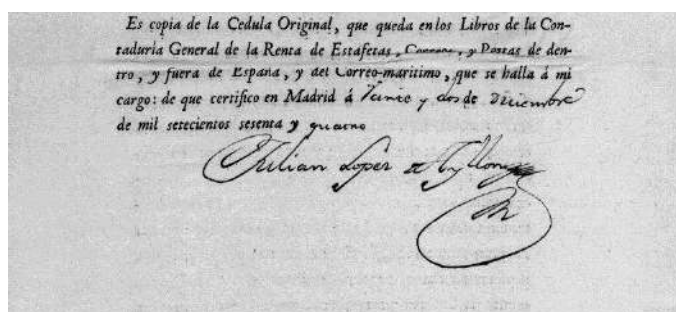 Es copia de la Cedula Original, que queda en los Libros de la Con-
taduría General de la Renta de Estafetas, Correos, y Postas de den-
tro, y fuera de España, y del Correo-maritimo, que se halla á mi
cargo: de que certifico en Madrid á Veinte y dos de Diciembre
de mil setecientos sesenta y quatro
Julian Lopez de Ayllon